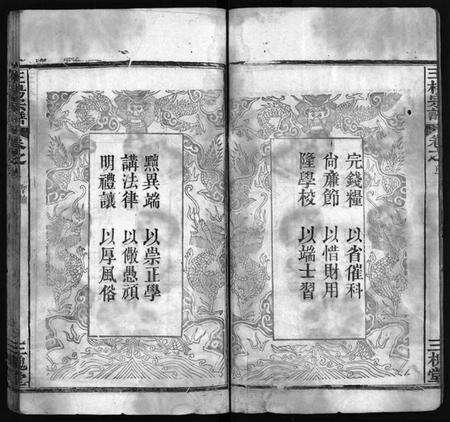 完錢糧 以省催科
尙廉節 以惜財用
隆學校 以端士習
黜異端 以崇正學
講法律 以儆愚頑
明禮讓 以厚風俗
宗譜 卷之
三槐堂